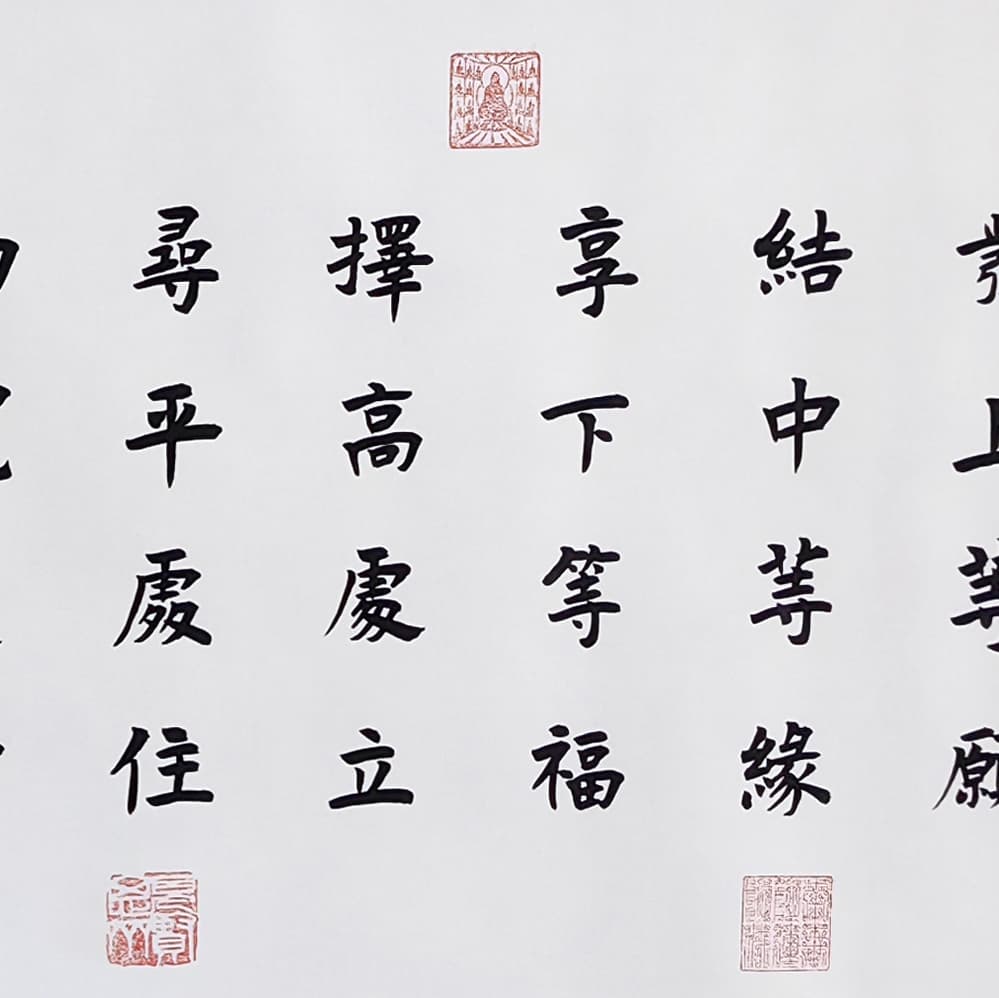 上等願
結中等緣
享下等福
擇高處立
尋平處住